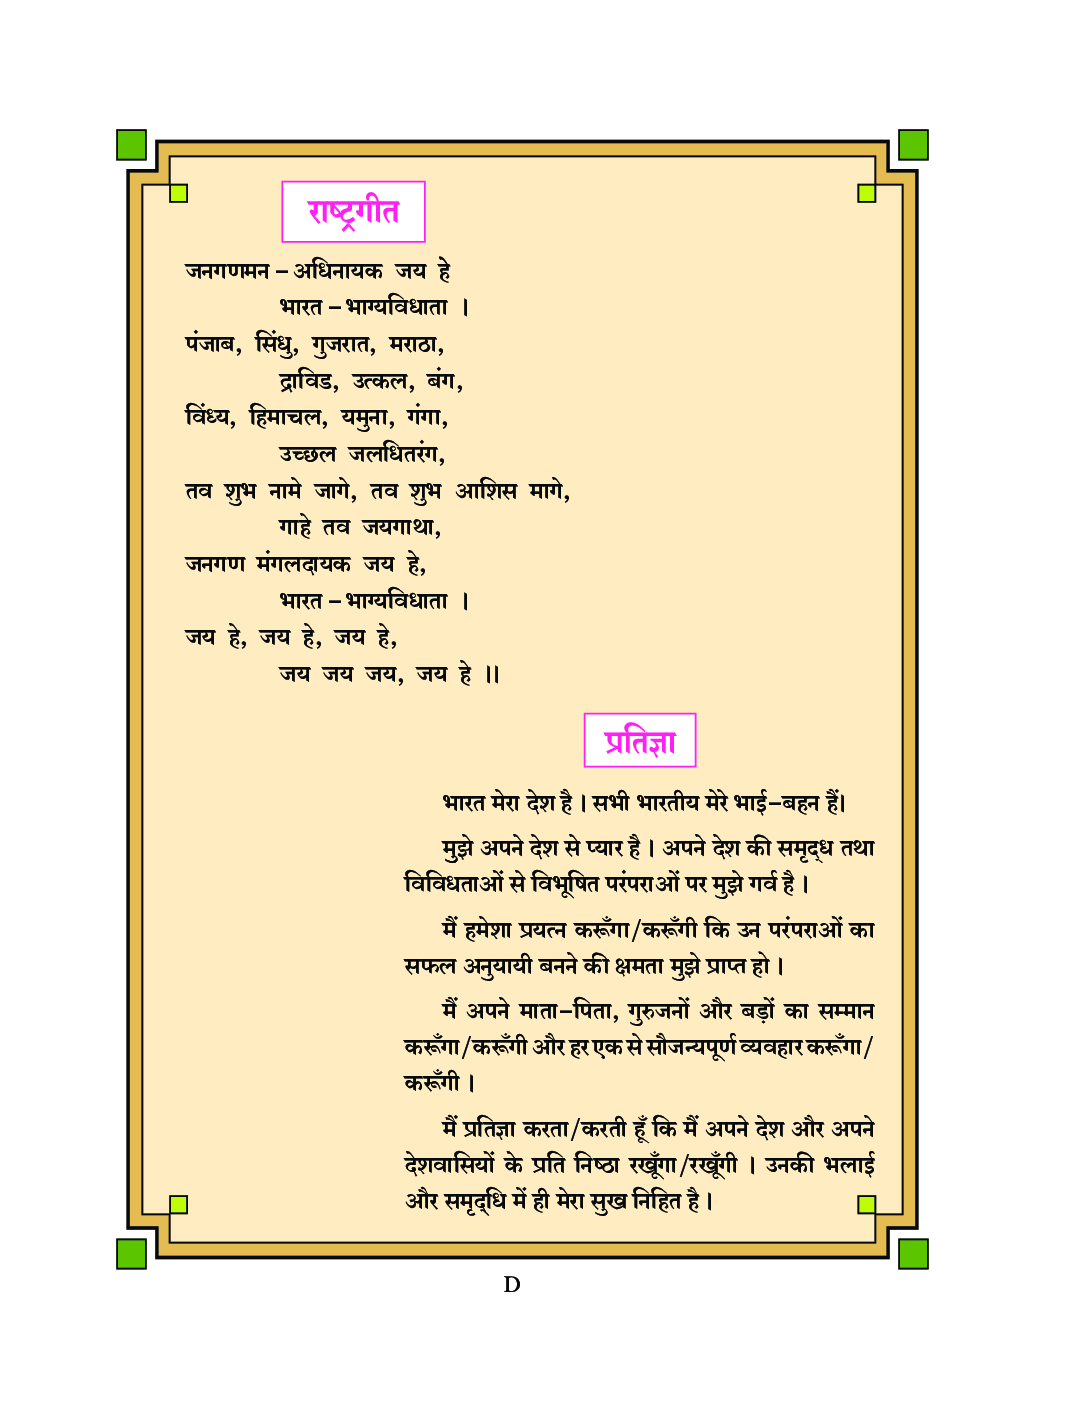 राष्ट्रगीत
जनगणमन – अधिनायक जय हे
भारत – भाग्यविधाता ।
पंजाब, सिंधु, गुजरात, मराठा,
द्राविड, उत्कल, बंग,
विंध्य, हिमाचल, यमुना, गंगा,
उच्छल जलधितरंग,
तव शुभ नामे जागे, तव शुभ आशिस मागे,
गाहे तव जयगाथा,
जनगण मंगलदायक जय हे,
भारत – भाग्यविधाता ।
जय हे, जय हे, जय हे,
जय जय जय, जय हे ।।
प्रतिज्ञा
भारत मेरा देश है । सभी भारतीय मेरे भाई-बहन हैं।
मुझे अपने देश से प्यार है । अपने देश की समृद्ध तथा
विविधताओं से विभूषित परंपराओं पर मुझे गर्व है ।
मैं हमेशा प्रयत्न करूँगा/करूँगी कि उन परंपराओं का
सफल अनुयायी बनने की क्षमता मुझे प्राप्त हो ।
मैं अपने माता-पिता, गुरुजनों और बड़ों का सम्मान
करूँगा/करूँगी और हर एक से सौजन्यपूर्ण व्यवहार करूँगा/
करूँगी ।
मैं प्रतिज्ञा करता/करती हूँ कि मैं अपने देश और अपने
देशवासियों के प्रति निष्ठा रखूँगा/रखूँगी । उनकी भलाई
और समृद्धि में ही मेरा सुख निहित है ।
D